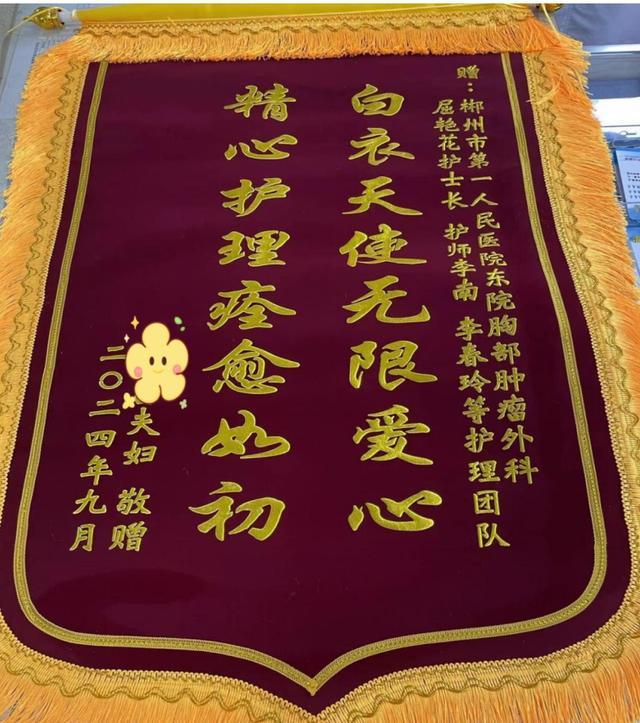 赠：郴州市第一人民医院东院胸部肿瘤外科
屈艳花护士长 护师李南 李春玲等护理团队
白衣天使无限爱心
精心护理痊愈如初
夫妇 敬赠
二〇二四年九月